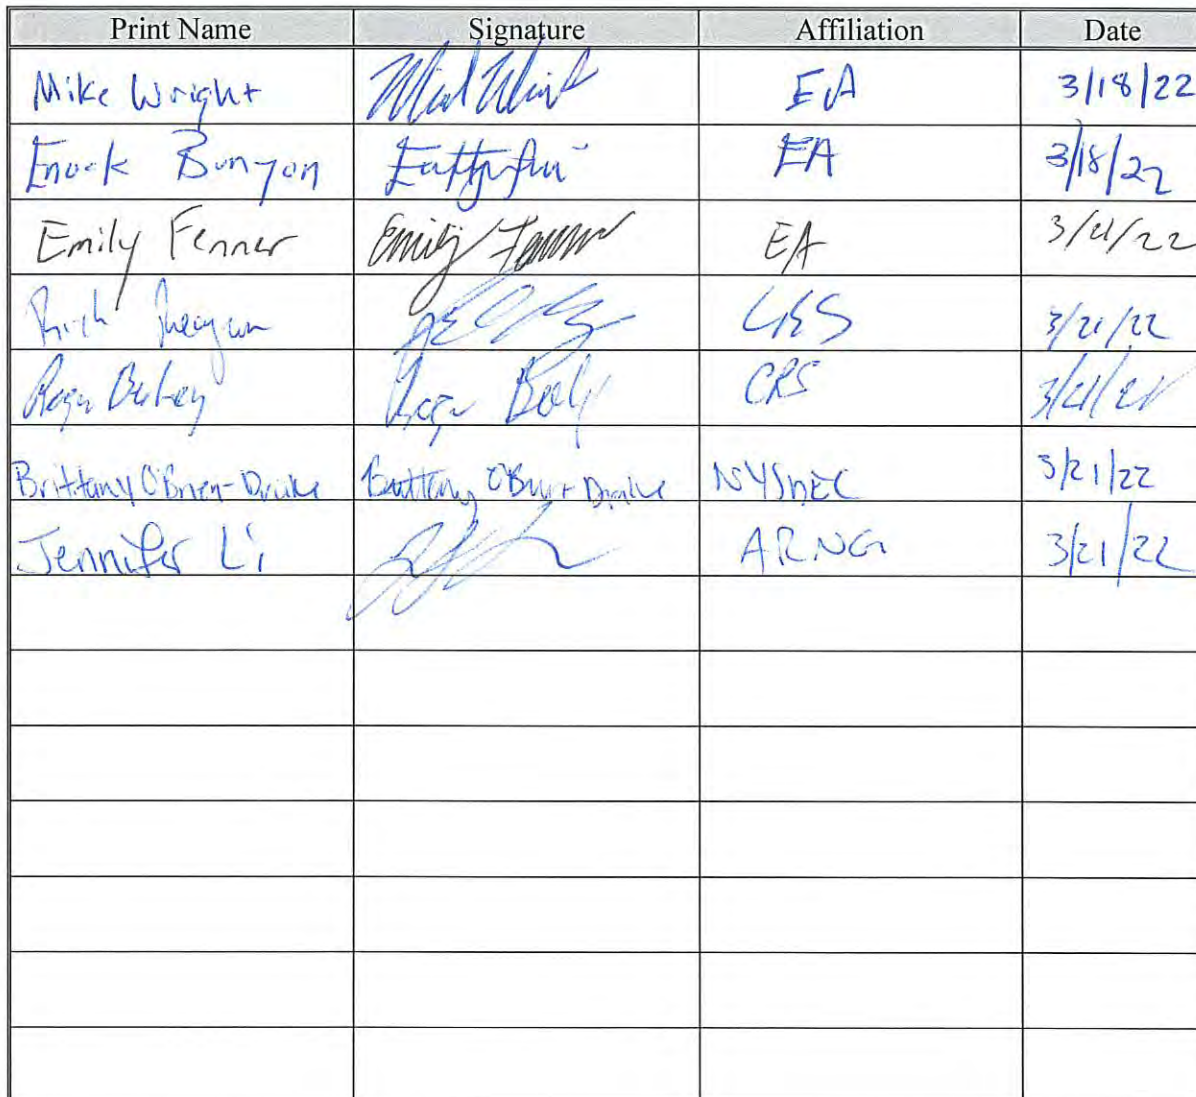 Print Name Signature Affiliation Date
Mike Wright EA 3/18/22
Enock Bunyon EA 3/18/22
Emily Fenner Emily Fenner EA 3/21/22
Rich 3/21/22
Roger Roger CRS 3/21/22
Brittany O'Brien-Drake Brittany O'Brien-Drake NYSDEC 3/21/22
Jennifer Li ARNG 3/21/22